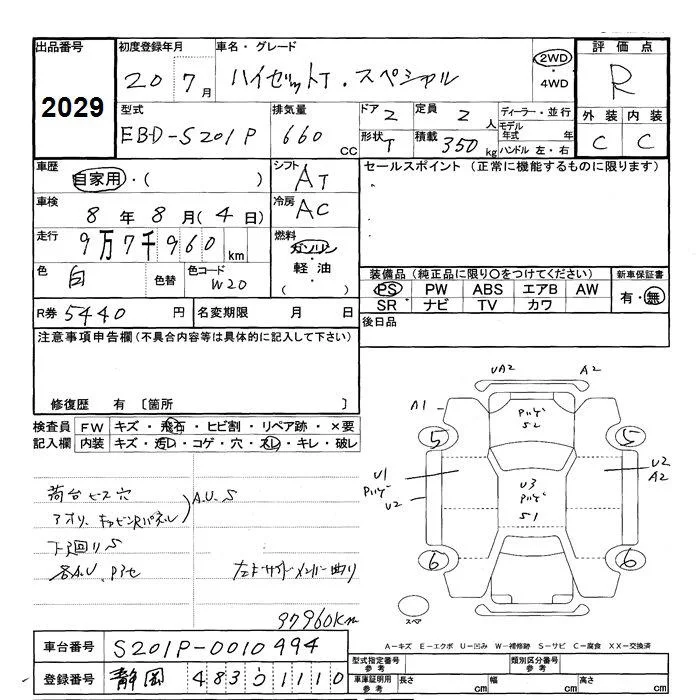 出品番号
2029
初度登録年月
20 7月
車名・グレード
ハイゼットT・スペシャル
2WD
・
4WD
評価点
R
外装 内装
C C
型式
EBD-S201P
排気量
660 CC
ドア 2
定員 2 人
形状 T
積載 350 kg
ディーラー・並行
モデル年式 年
ハンドル 左・右
車歴
自家用・( )
シフト
AT
車検
8年8月(4日)
冷房
AC
走行
9万7千960km
燃料
ガソリン
・
軽油
( )
色
白
色替
色コード
W20
R券 5440 円
名変期限 月 日
セールスポイント (正常に機能するものに限ります)
装備品 (純正品に限り○をつけてください)
PS PW ABS エアB AW
SR ナビ TV カワ
新車保証書
有・無
後日品
注意事項申告欄 (不具合内容等は具体的に記入して下さい)
修復歴 有 〔箇所 〕
検査員記入欄
FW キズ・飛石・ヒビ割・リペア跡・×要
内装 キズ・汚レ・コゲ・穴・スレ・キレ・破レ
荷台 ビス穴
アオリ、キャビンRパネル
A.U.S
下廻りS
97960km
UA2 A2
A1
Pハゲ
S2
5 5
U1
Pハゲ
U2
U3
Pハゲ
S1
U2
A2
6 6
スペア
A-キズ E-エクボ U-凹み W-補修跡 S-サビ C-腐食 XX-交換済
車台番号 S201P-0010494
登録番号 静岡 483 い 1110
型式指定番号 参考
類別区分番号 参考
車庫証明用 参考
長さ cm
幅 cm
高さ cm